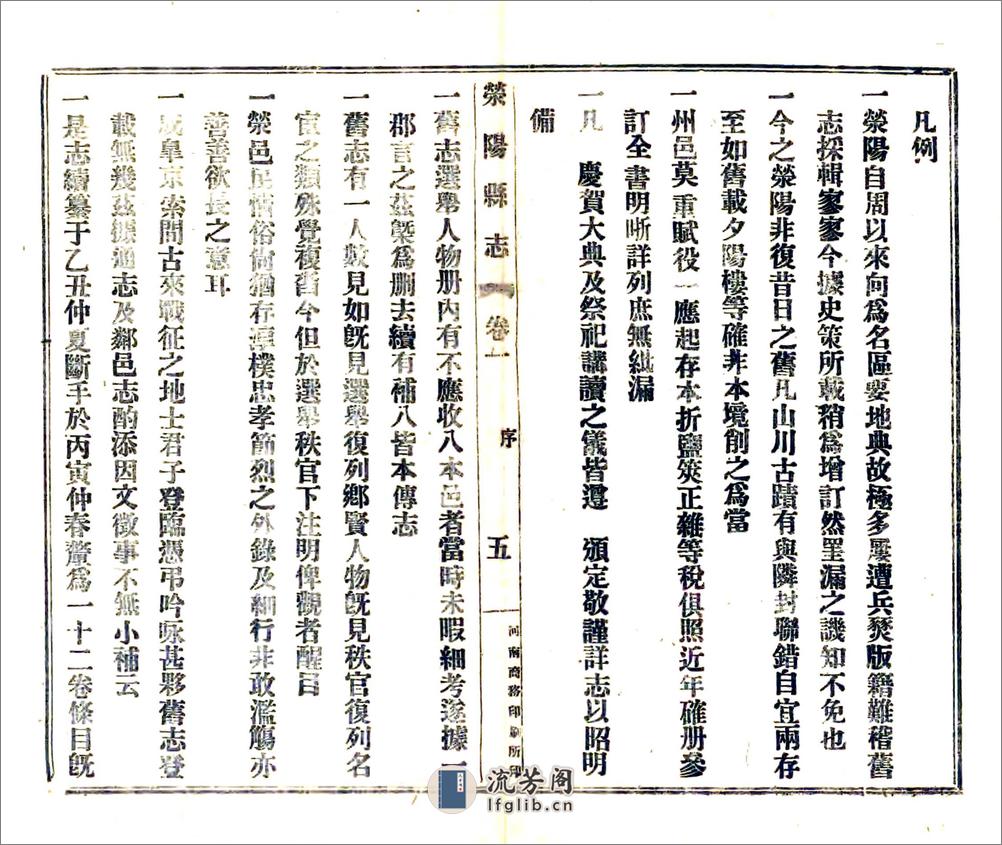 凡例
一滎陽自周以來向爲名區要地典故極多屢遭兵燹版籍難稽舊
志採輯寥寥今據史策所載稍爲增訂然罣漏之譏知不免也
一今之滎陽非復昔日之舊凡山川古蹟有與隣封聯錯自宜兩存
至如舊載夕陽樓等確非本境削之爲當
一州邑莫重賦役一應起存本折鹽筴正雜等稅俱照近年確册參
訂全書明晰詳列庶無紕漏
一凡 慶賀大典及祭祀講讀之儀皆遵 頒定敬謹詳志以昭明
備
滎陽縣志 卷一 序 五 河南商務印刷所印
一舊志選舉人物册內有不應收入本邑者當時未暇細考遂據一
郡言之茲槩爲刪去續有補入皆本傳志
一舊志有一人數見如旣見選舉復列鄕賢人物旣見秩官復列名
宦之類殊覺複沓今但於選舉秩官下注明俾觀者醒目
一滎邑民情俗尙猶存淳樸忠孝節烈之外錄及細行非敢濫觴亦
善善欲長之意耳
一成皐京索間古來戰征之地士君子登臨憑弔吟咏甚夥舊志登
載無幾茲據通志及鄰邑志酌添因文徵事不無小補云
一是志續纂于乙丑仲夏斷手於丙寅仲春釐爲一十二卷條目旣
流芳阁
lfglib.cn